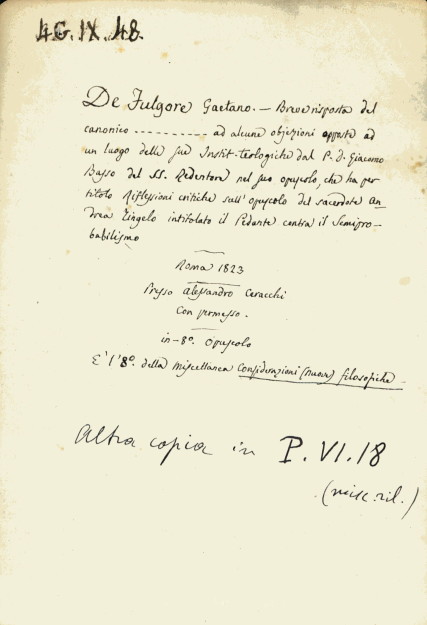 4G.IX.48.
De Fulgore Gaetano. — Breve risposta del
canonico ---------- ad alcune objezioni opposte ad
un luogo delle sue Instit-teologiche dal P. d. Giacomo
Basso del SS. Redentore nel suo opuscolo, che ha per
titolo Riflessioni critiche sull'opuscolo del sacerdote An
drea Zingelo intitolato il Pedante contra il Semipro-
babilismo
Roma 1823
Presso Alessandro Ceracchi
Con permesso.
in-8º opuscolo
E' l'8º della Miscellanea Considerazioni (nuove) filosofiche
Altra copia in P.VI.18
(misc. ril.)